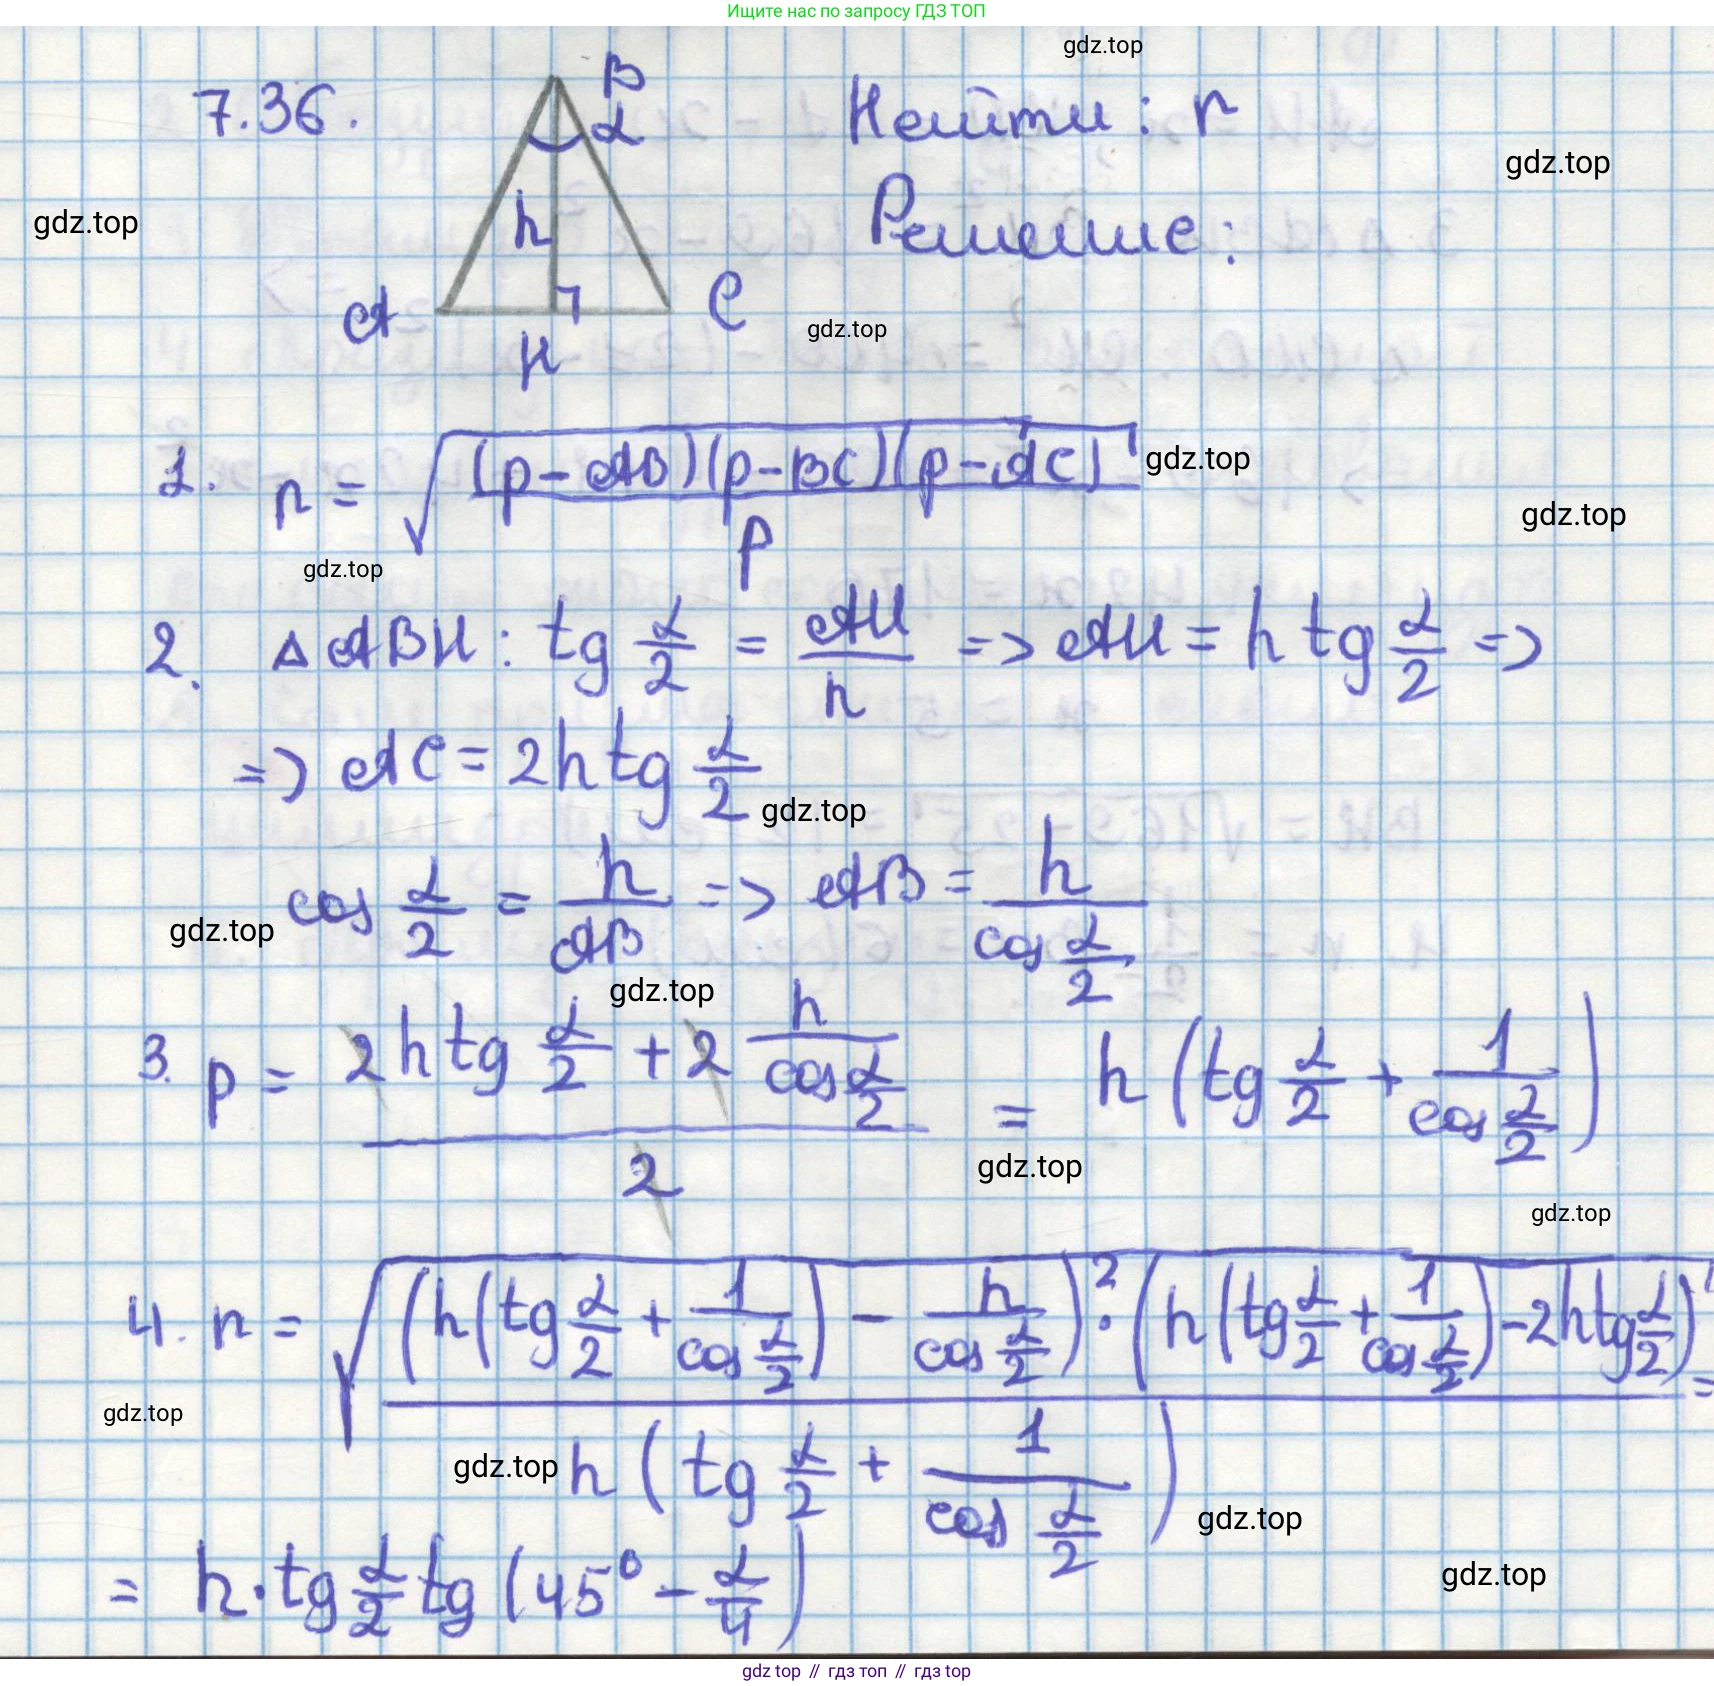 Ищите нас по запросу ГДЗ ТОП
gdz.top
7.36.
B
α
h
A
H
C
Найти: r
Решение:
gdz.top
gdz.top
gdz.top
1. r = √((p-AB)(p-BC)(p-AC) / p)
gdz.top
gdz.top
gdz.top
2. △ABH: tg α/2 = AH/h => AH = h tg α/2 =>
=> AC = 2h tg α/2
gdz.top
cos α/2 = h/AB => AB = h/(cos α/2)
gdz.top
gdz.top
3. p = (2h tg α/2 + 2 h/(cos α/2)) / 2 = h (tg α/2 + 1/(cos α/2))
gdz.top
gdz.top
4. r = √((h(tg α/2 + 1/(cos α/2)) - h/(cos α/2))² · (h(tg α/2 + 1/(cos α/2)) - 2h tg α/2) / (h (tg α/2 + 1/(cos α/2)))) =
gdz.top
gdz.top
gdz.top
gdz.top
= h · tg α/2 tg (45° - α/4)
gdz top // гдз топ // гдз top